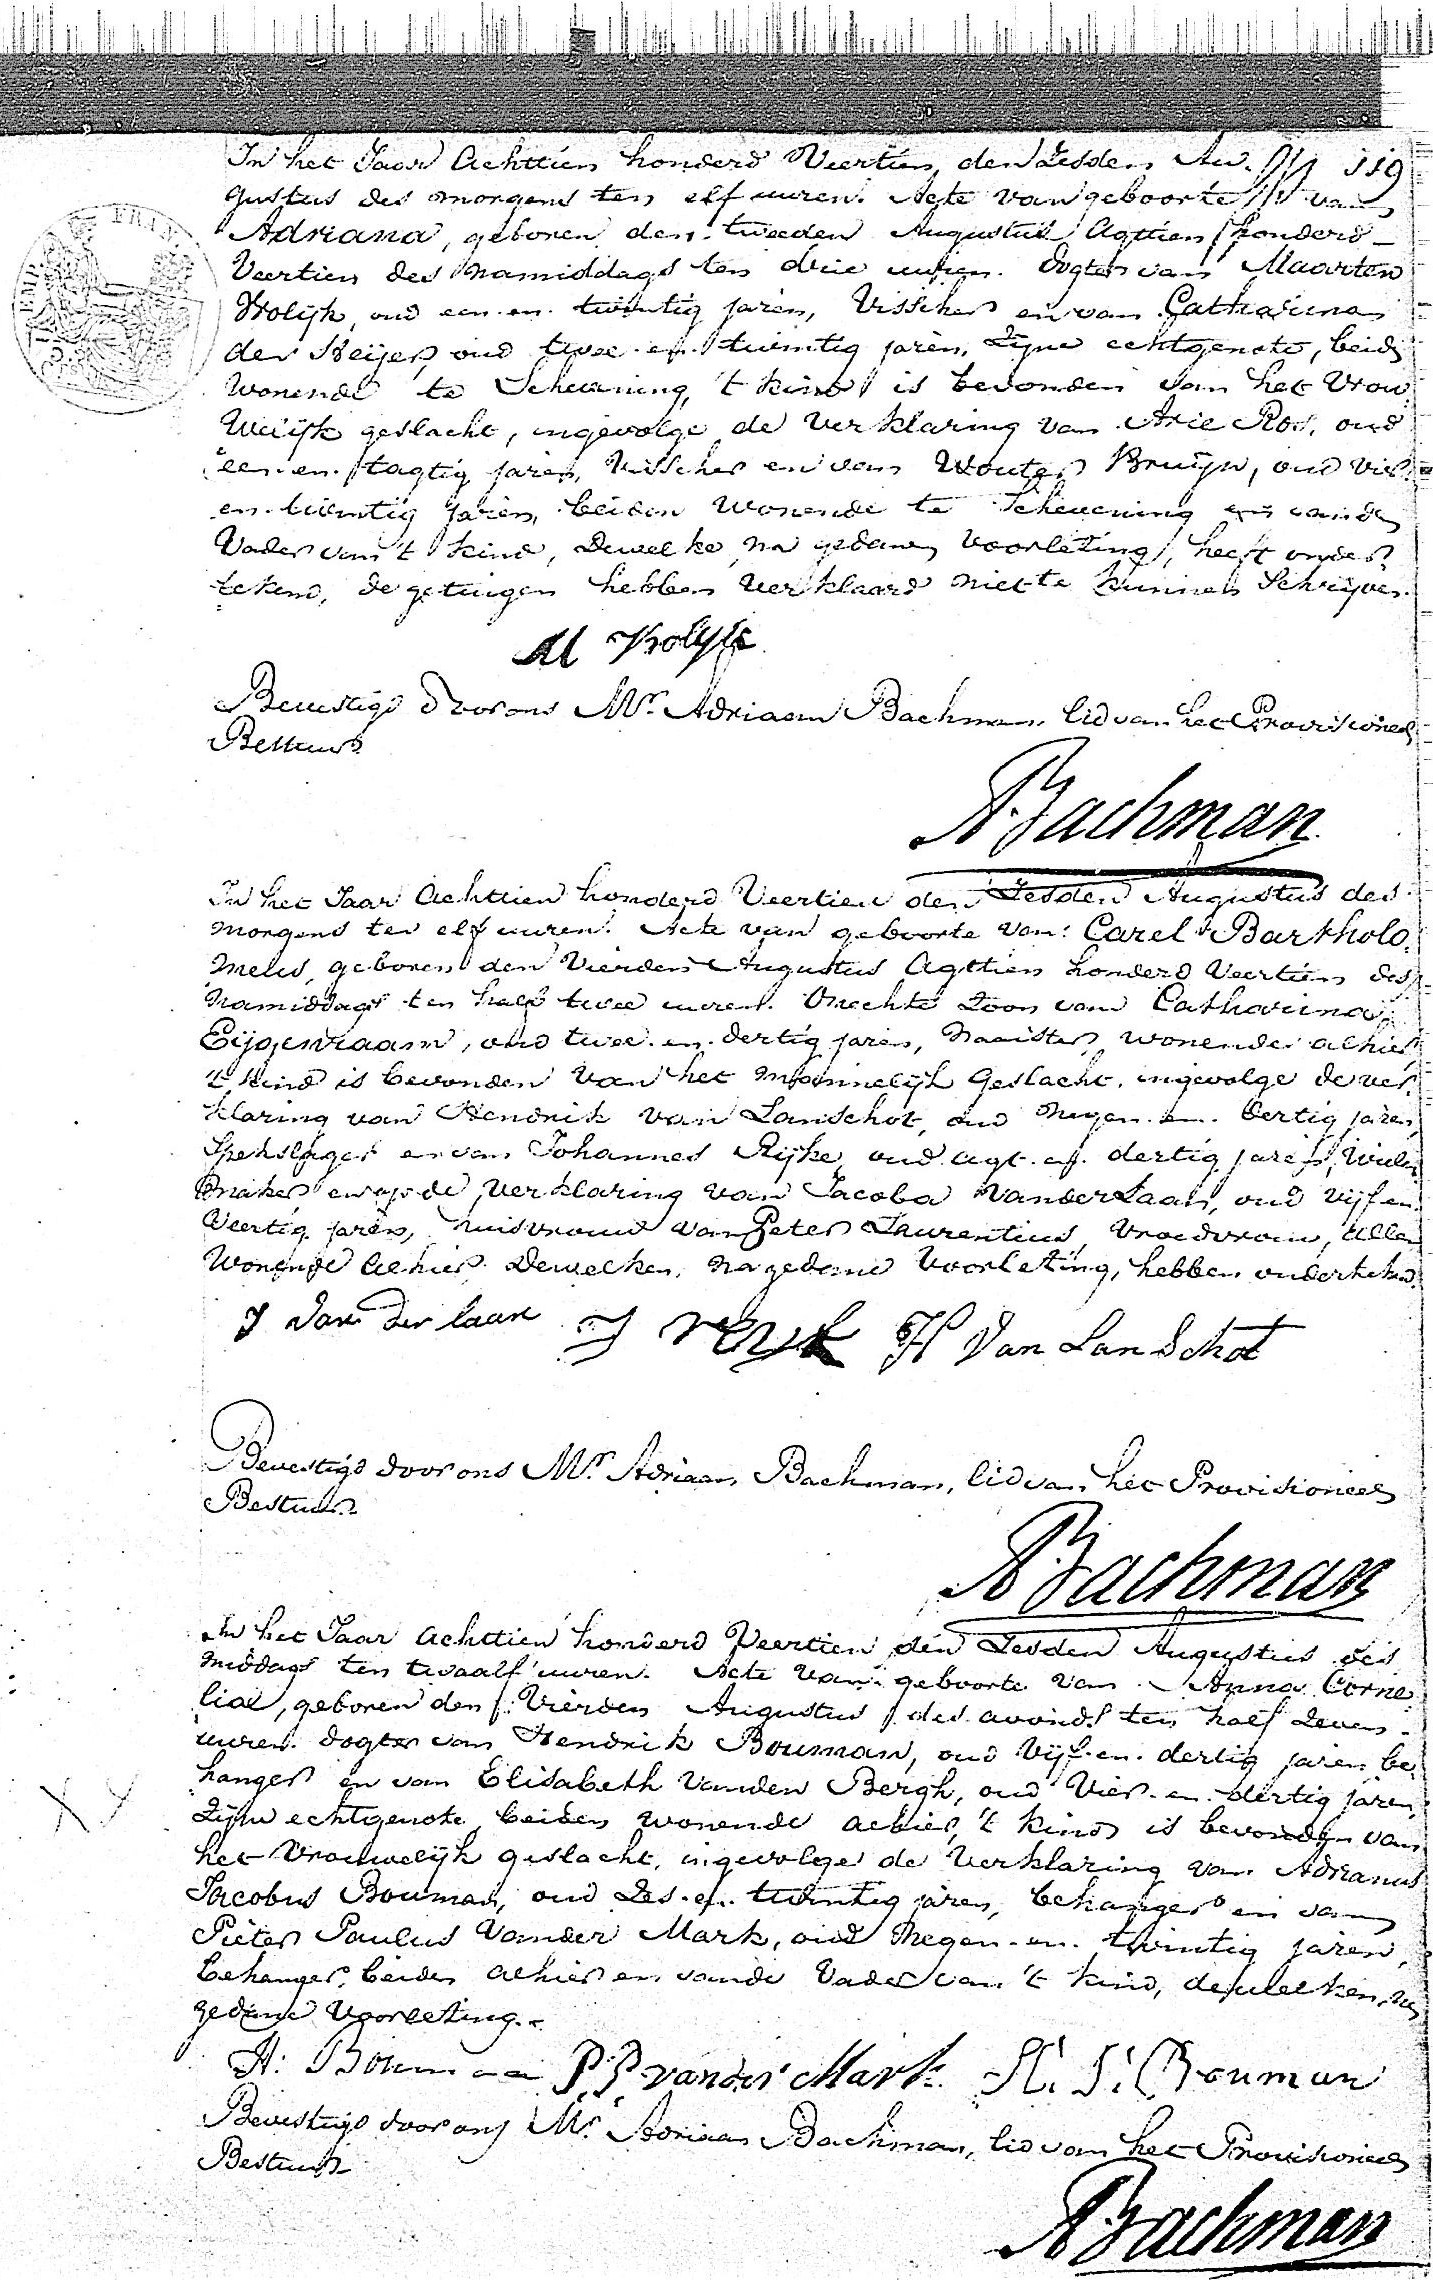 119
In het Jaar Achttien honderd Veertien den Zesden Au-
gustus des morgens ten elf uuren. Acte van geboorte van
Adriana, geboren den tweeden Augustus Agttien honderd
Veertien des namiddags ten drie uuren. Dogter van Maarten
Vrolijk, oud een en twintig jaren, Visscher en van Catharina
den Heijer, oud twee en twintig jaren, Zijne echtgenote, beide
Wonende te Schevening, 't kind is bevonden van het Vrou
Welijk geslacht, ingevolge de Verklaring van Arie Ros, oud
een en tagtig jaren, Visscher en van Wouter Bruijn, oud vier
en twintig jaren, beiden Wonende te Schevening en van den
Vader van 't kind, Dewelke, na gedane Voorlezing, heeft onder
tekend, de getuigen hebben Verklaard niet te kunnen Schrijven.
M Vrolijk
Bevestigd door ons Mr. Adriaan Bachman, lid van het Provisioneel
Bestuur.
A Bachman
In het Jaar Achttien honderd Veertien den Zesden Augustus des
morgens ten elf uuren. Acte van geboorte van: Carel Bartholo,
meus, geboren den Vierden Augustus Agttien honderd Veertien des
namiddags ten half twee uuren. Onechte Zoon van Catharina
Eijgenraam, oud twee en dertig jaren, Naaister, wonende alhier
't kind is bevonden Van het Mannelijk Geslacht, ingevolge de ver
klaring van Hendrik van Lanschot, oud Negen en dertig jaren,
Spekslager en van Johannes Rijke, oud agt en dertig jaren,
maker en op de Verklaring van Jacoba Vander Laan, oud vijf en
Veertig jaren, huisvrouw van Peter Laurentius, Vroedvrouw, allen
Wonende Alhier, Dewelken, na gedane Voorlezing, hebben ondertekend.
J Van der laan J reyk H Van Lan Schot
Bevestigd door ons Mr. Adriaan Bachman, lid van het Provisioneel
Bestuur.
A Bachman
In het Jaar Achttien honderd Veertien den Zesden Augustus des
middags ten twaalf uuren. Acte van geboorte van Anna Corne
lia, geboren den Vierden Augustus des avonds ten half Zeven
uuren. Dogter van Hendrik Bouman, oud Vijf en dertig jaren be
hanger en van Elisabeth Vanden Bergh, oud Vier en dertig jaren,
Zijne echtgenote beiden wonende alhier, 't kind is bevonden van
het Vrouwelijk geslacht, ingevolge de Verklaring van Adrianus
Jacobus Bouman, oud Zes en twintig jaren, behanger en van
Pieter Paulus Vander Mark, oud Negen en twintig jaren,
behanger, beiden alhier en van de Vader van 't kind, dewelken, na
gedane Voorlezing.
H: Bouman P. P. vander Mark A. J. Bouman
Bevestigd door ons Mr. Adriaan Bachman, lid van het Provisioneel
Bestuur
A Bachman